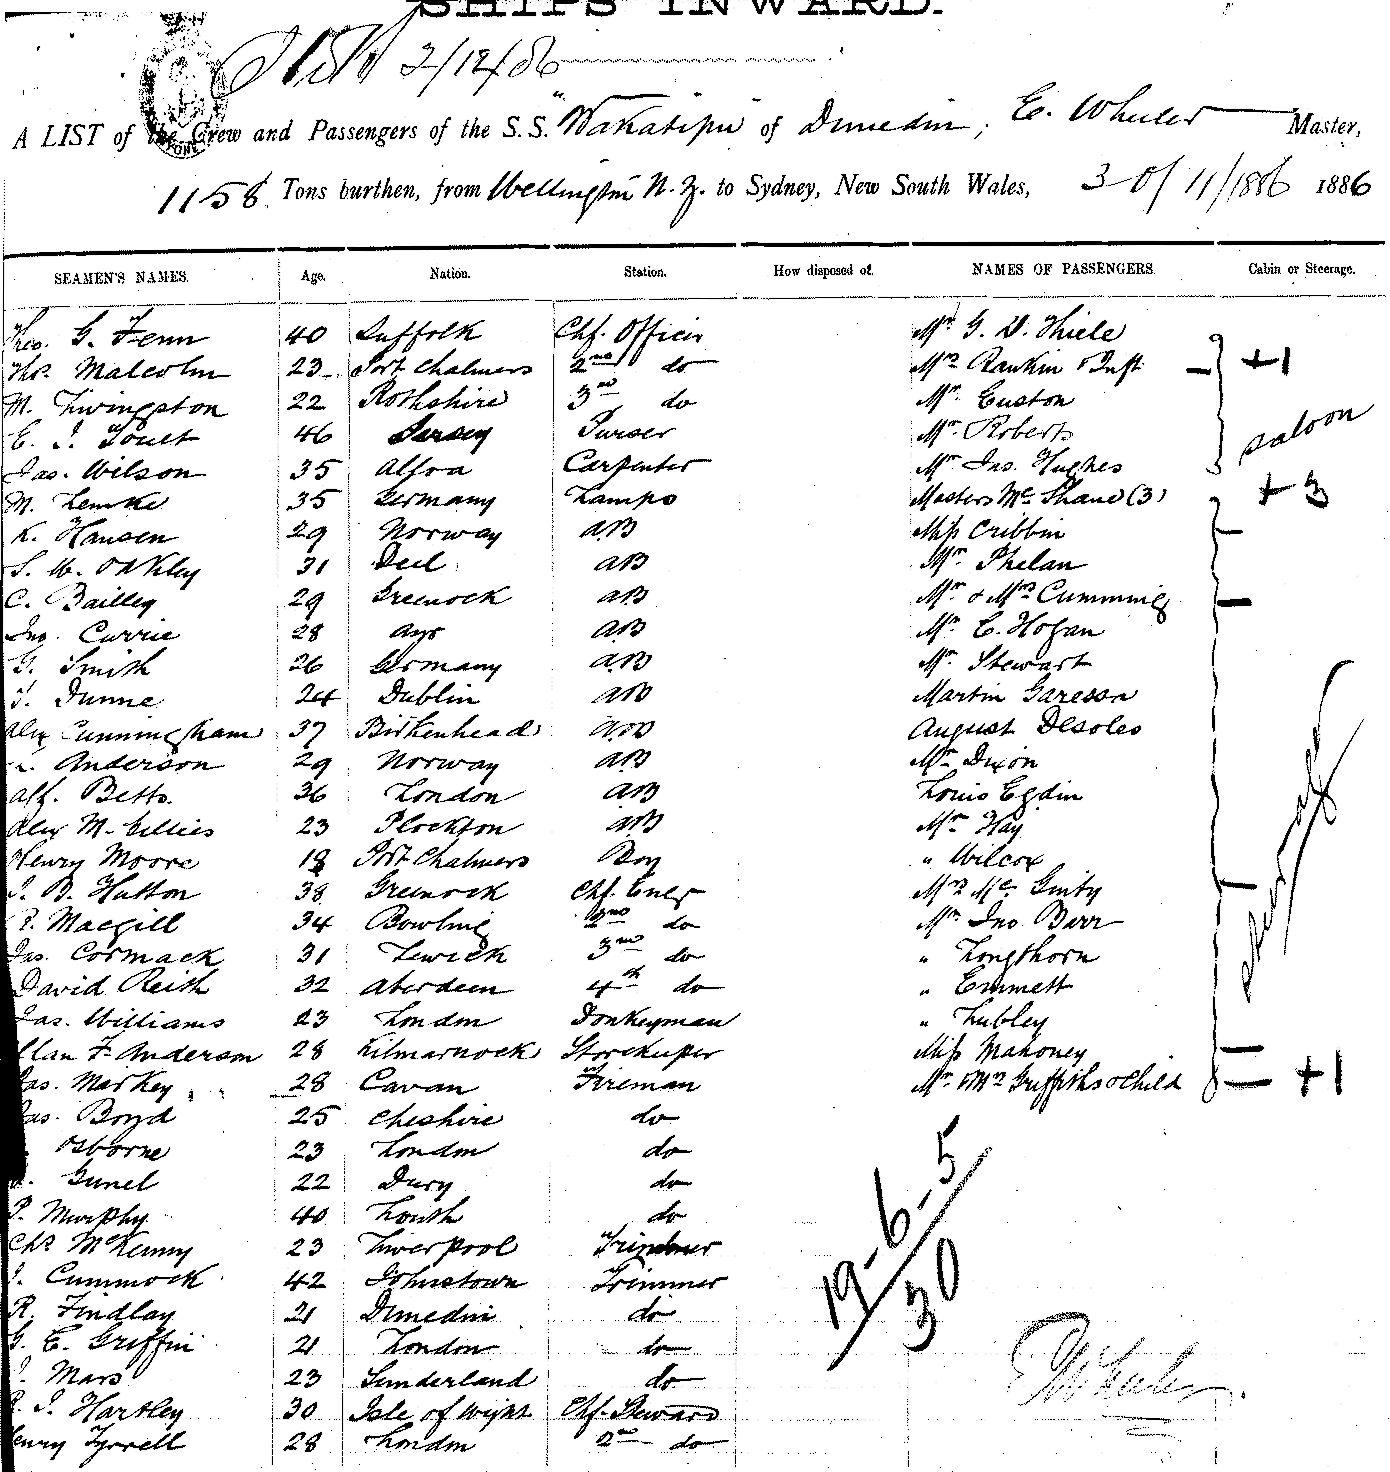 SHIPS INWARD.
2/12/86
A LIST of the Crew and Passengers of the S.S. "Wakatipu" of Dunedin, E. Wheeler Master,
1158 Tons burthen, from Wellington N.Z. to Sydney, New South Wales, 30/11/1886 1886
SEAMEN'S NAMES. Age. Nation. Station. How disposed of. NAMES OF PASSENGERS. Cabin or Steerage.
Theo. G. Fenn 40 Suffolk Chf. Officer Mr. G. V. Thiele
Thos. Malcolm 23 Port Chalmers 2nd do Mrs Rankin & Inft +1
M. Livingston 22 Rothshire 3rd do Mr. Euston
E. J. Toult 46 Jersey Purser Mr. Roberts saloon
Jas. Wilson 35 Alloa Carpenter Mr Jas. Hughes
M. Lemke 35 Germany Lamps Masters Mc. Shane (3) +3
K. Hansen 29 Norway AB Miss Cribbin
S. W. Oakley 31 Deal AB Mr. Phelan
C. Bailley 29 Greenock AB Mr & Mrs Cumming
Jno. Currie 28 Ayr AB Mr. C. Hogan
G. Smith 26 Germany AB Mr. Stewart
T. Dunne 24 Dublin AB Martin Gareson
Alex Cunningham 37 Birkenhead AB August Desoles
Anderson 29 Norway AB Mr. Dixon
Alf. Betts. 36 London AB Louis Egdin
Alex M. Gillies 23 Plockton AB Mr Hay
Henry Moore 18 Port Chalmers Boy " Wilcox
J. B. Hutton 38 Greenock Chf. Engr Mrs Mc Ginty
P. Macgill 34 Bowling 2nd do Mr Jno. Barr
Jas. Cormack 31 Lewick 3rd do " Longthorn
David Reith 32 Aberdeen 4th do " Emmett
Jas. Williams 23 London Donkeyman " Lubley
Allan F. Anderson 28 Kilmarnock Storekeeper Miss Mahoney
Jas. Markey 28 Cavan Fireman Mr & Mrs Griffiths & Child +1
Jas. Boyd 25 Cheshire do
Osborne 23 London do
Gunel 22 Dury do
P. Murphy 40 Louth do
Chs McKenny 23 Liverpool Trimmer
J. Cummock 42 Johnstown Trimmer
R. Findlay 21 Dunedin do
G. E. Griffin 21 London do
J. Mars 23 Sunderland do
R. J. Hartley 30 Isle of Wight Chf. Steward
Henry Tyrrell 28 London 2nd do
steerage
19-6-5
30
E Wheeler.